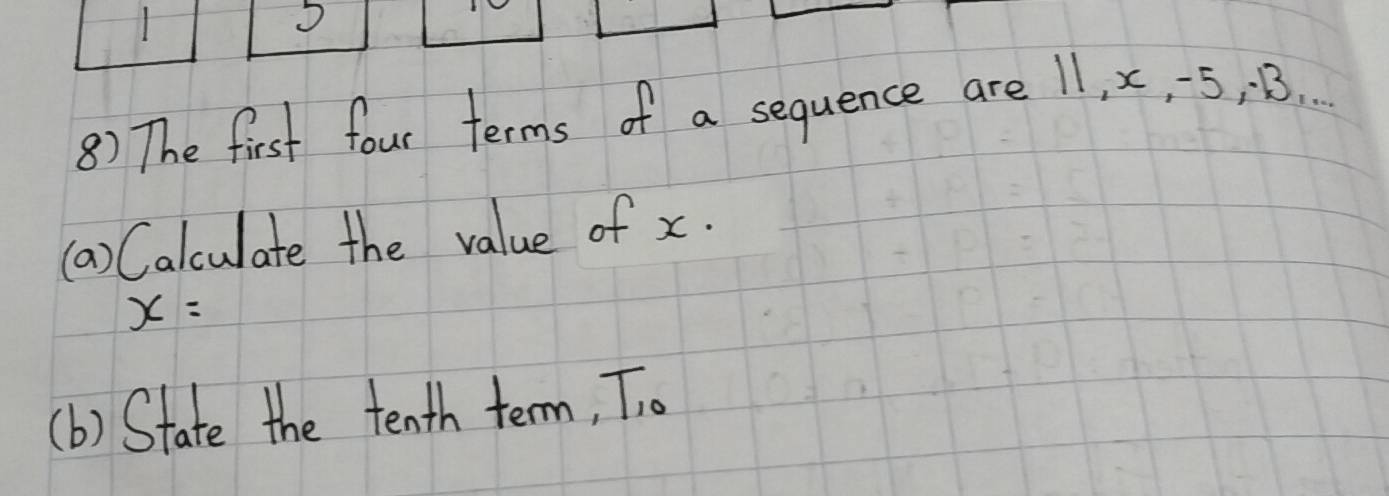 1 5 10
8) The first four terms of a sequence are 11, x, -5, -13, ...
(a) Calculate the value of x.
x =
(b) State the tenth term, T₁₀